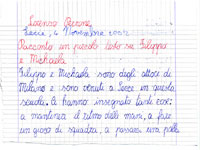 Lorenzo
Lecce, 4 Novembre
Racconto un piccolo testo su Filippo
e Michaela
Filippo e Michaela sono degli attori di
Milano e sono venuti a Lecce in questa
scuola, ci hanno insegnato tante cose:
a mantenere il ritmo delle mani, a fare
un gioco di squadra, a passare una palla